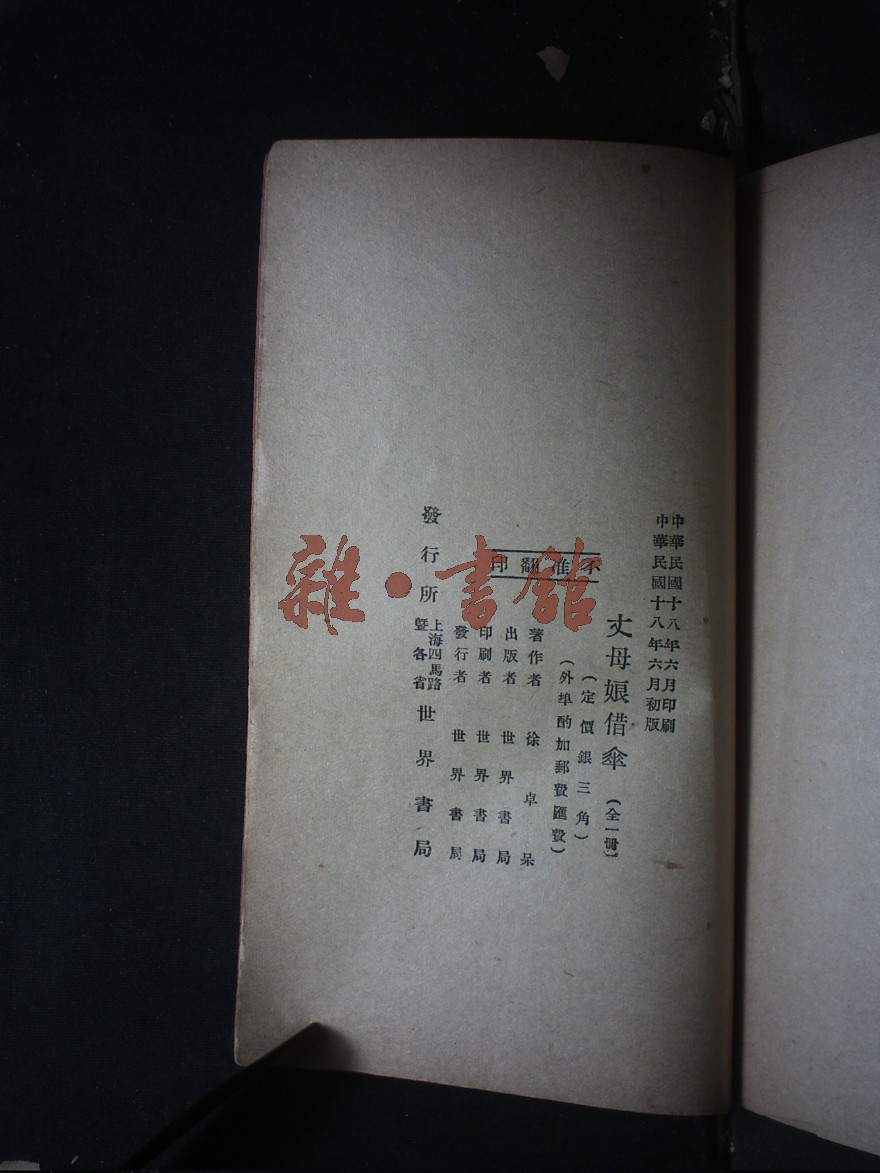 中華民國十八年六月印刷
中華民國十八年六月初版
丈母娘借傘（全一冊）
（定價銀三角）
（外埠酌加郵費匯費）
不准翻印
著作者 徐卓呆
出版者 世界書局
印刷者 世界書局
發行者 世界書局
發行所 上海四馬路暨各省 世界書局
雜·書館